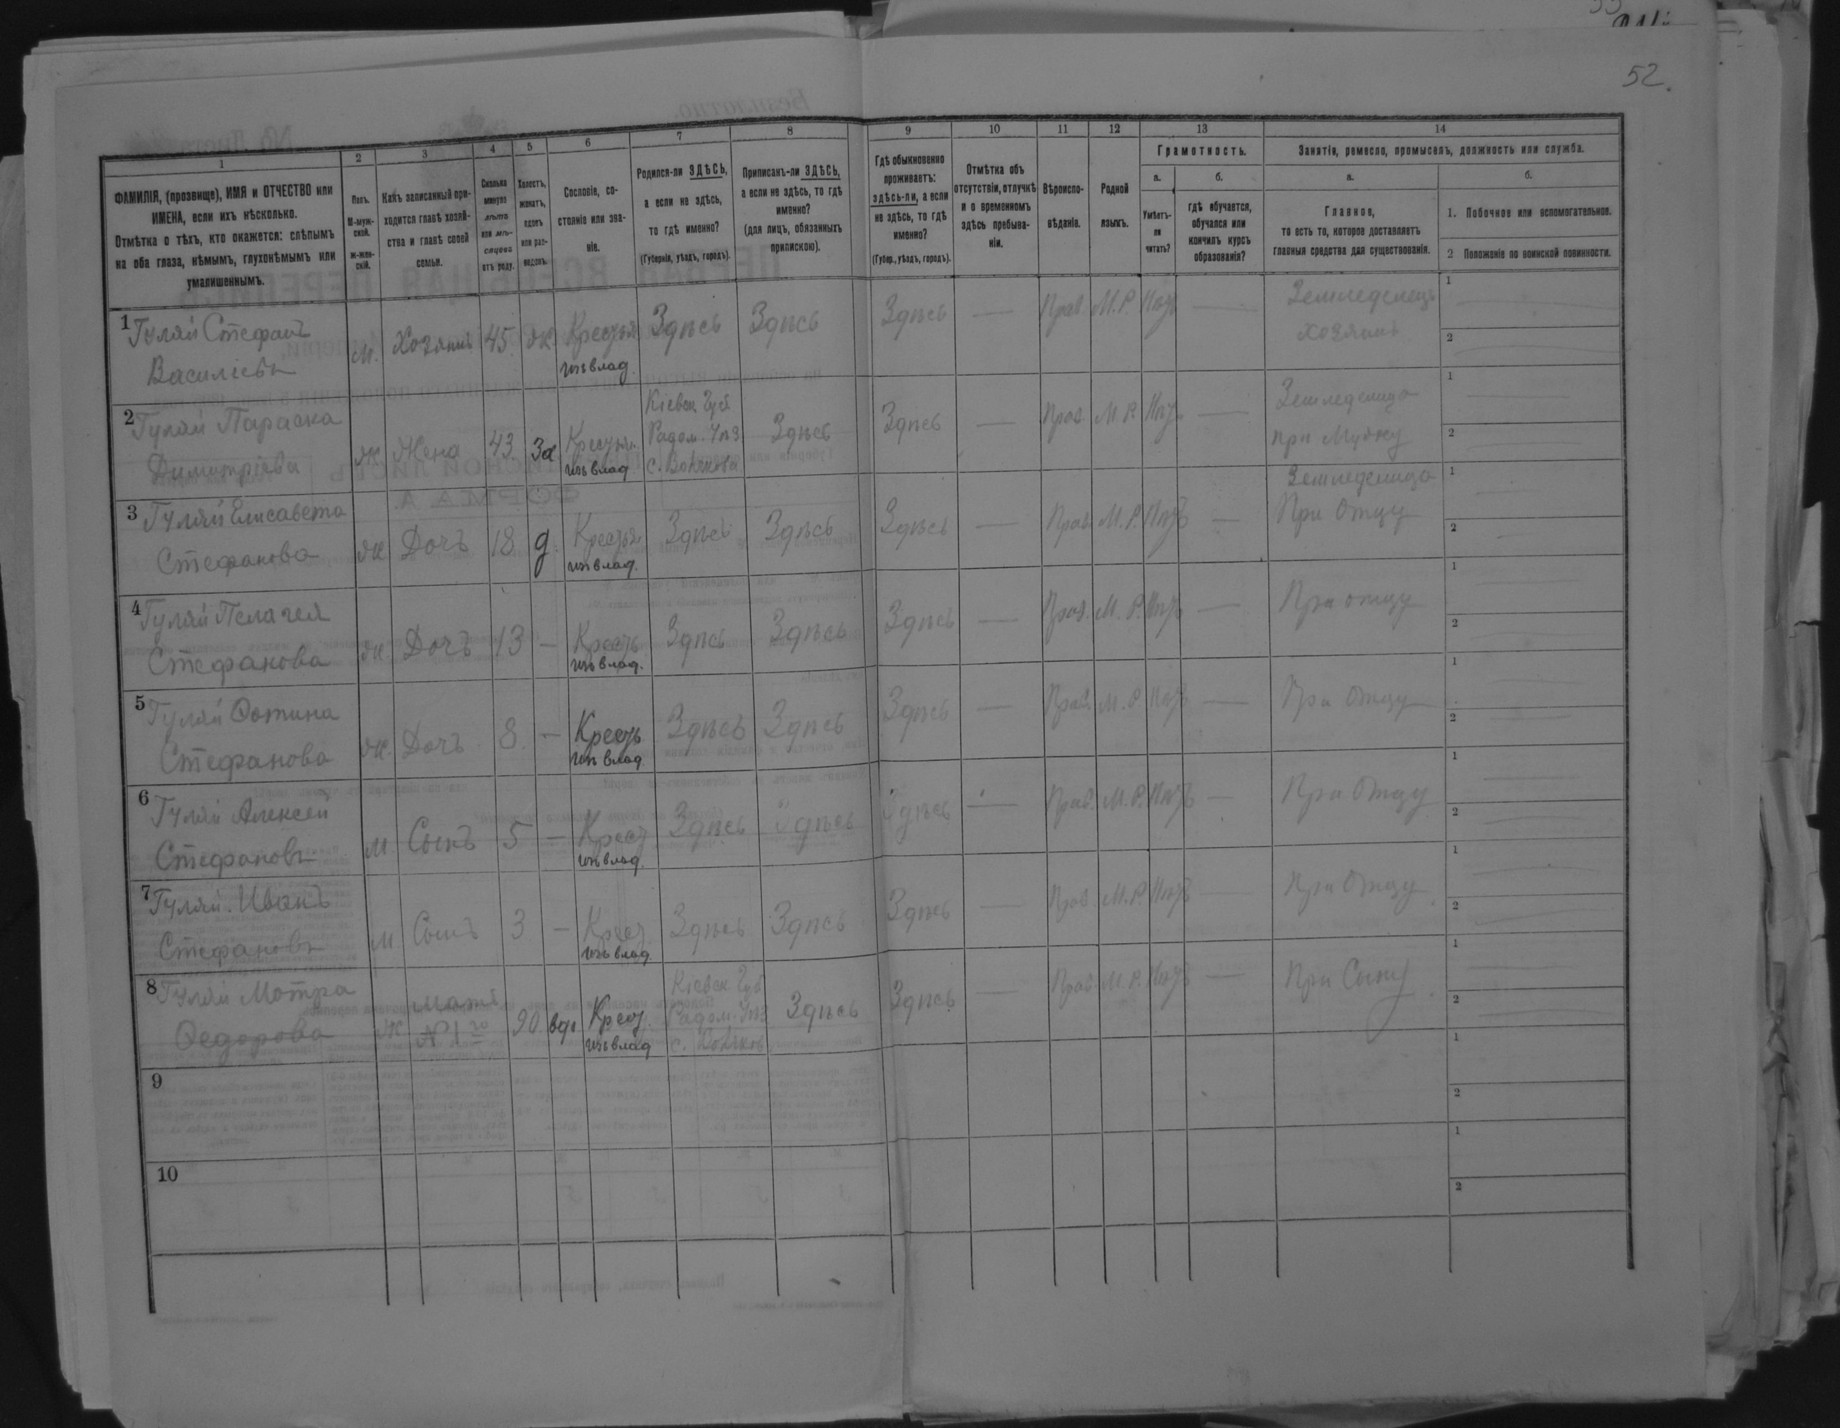 52.
1 2 3 4 5 6 7 8 9 10 11 12 13 14
ФАМИЛІЯ, (прозвище), ИМЯ и ОТЧЕСТВО или
ИМЕНА, если ихъ нѣсколько.
Отмѣтка о тѣхъ, кто окажется: слѣпымъ
на оба глаза, нѣмымъ, глухонѣмымъ или
умалишеннымъ.
Полъ.
М-муж-
ской.
ж-жен-
скій.
Какъ записанный при-
ходится главѣ хозяй-
ства и главѣ своей
семьи.
Сколько
минуло
лѣтъ
или мѣ-
сяцевъ
отъ роду.
Холостъ,
женатъ,
вдовъ
или раз-
веденъ.
Сословіе, со-
стояніе или зва-
ніе.
Родился-ли ЗДѢСЬ,
а если не здѣсь,
то гдѣ именно?
(Губернія, уѣздъ, городъ).
Приписанъ-ли ЗДѢСЬ,
а если не здѣсь, то гдѣ
именно?
(для лицъ, обязанныхъ
припискою).
Гдѣ обыкновенно
проживаетъ:
здѣсь-ли, а если
не здѣсь, то гдѣ
именно?
(Губер., уѣздъ, городъ).
Отмѣтка объ
отсутствіи, отлучкѣ
и о временномъ
здѣсь пребыва-
ніи.
Вѣроиспо-
вѣданіе.
Родной
языкъ.
Грамотность.
а.
Умѣетъ-
ли
читать?
б.
гдѣ обучается,
обучался или
кончилъ курсъ
образованія?
Занятіе, ремесло, промыселъ, должность или служба.
а.
Главное,
то есть то, которое доставляетъ
главныя средства для существованія.
б.
1. Побочное или вспомогательное.
2 Положеніе по воинской повинности.
1 Гуляй Стефанъ
Василіевъ
м. Хозяинъ 45 ж. Крестьян изъ влад. Здѣсь Здѣсь Здѣсь — Прав. М.Р. Нѣтъ — Земледелецъ
хозяинъ
1
2
2 Гуляй Параска
Димитріева
ж Жена 43 За Крестьян изъ влад Кіевск Губ
Радом. Уѣз
с. Здѣсь Здѣсь — Прав. М.Р. Нѣтъ — Земледелица
при Мужу
1
2
3 Гуляй Елисавета
Стефанова
ж Дочъ 18 д. Крестьян изъ влад. Здѣсь Здѣсь Здѣсь — Прав М.Р. Нѣтъ — Земледелица
При Отцу
1
2
4 Гуляй Пелагея
Стефанова
ж. Дочъ 13 — Кресть изъ влад. Здѣсь Здѣсь Здѣсь — Прав. М.Р. Нѣтъ — При отцу
1
2
5 Гуляй Фотина
Стефанова
ж. Дочъ 8 — Кресть изъ влад Здѣсь Здѣсь Здѣсь — Прав. М.Р. Нѣтъ — При Отцу
1
2
6 Гуляй Алексей
Стефановъ
м Сынъ 5 — Крест изъ влад. Здѣсь Здѣсь Здѣсь — Прав. М.Р. Нѣтъ — При Отцу
1
2
7 Гуляй. Иванъ
Стефановъ
м Сынъ 3 — Крест изъ влад Здѣсь Здѣсь Здѣсь — Прав. М.Р. Нѣтъ — При Отцу
1
2
8 Гуляй Мотря
Федорова
ж мать
№ 1го 90 вд. Крест. изъ влад Кіевск Губ
Радом. Уѣз
с. Здѣсь Здѣсь — Прав. М.Р. Нѣтъ — При Сыну
1
2
9
1
2
10
1
2